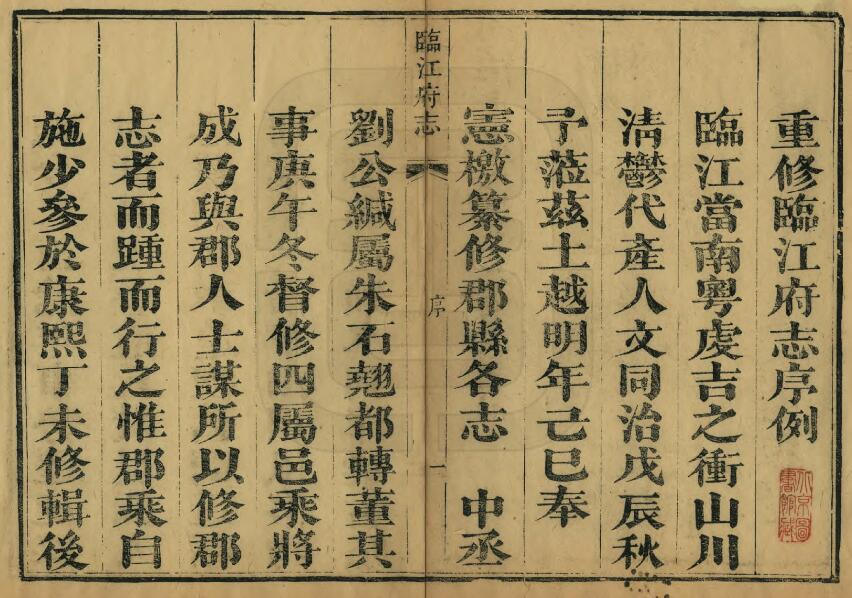 重修臨江府志序例
臨江當南粵虔吉之衝山川
清鬱代產人文同治戊辰秋
予蒞茲土越明年己巳奉
憲檄纂修郡縣各志 中丞
臨江府志
序
一
劉公緘屬朱石翹都轉董其
事庚午冬督修四屬邑乘將
成乃與郡人士謀所以修郡
志者而踵而行之惟郡乘自
施少參於康熙丁未修輯後
北京圖
書館藏